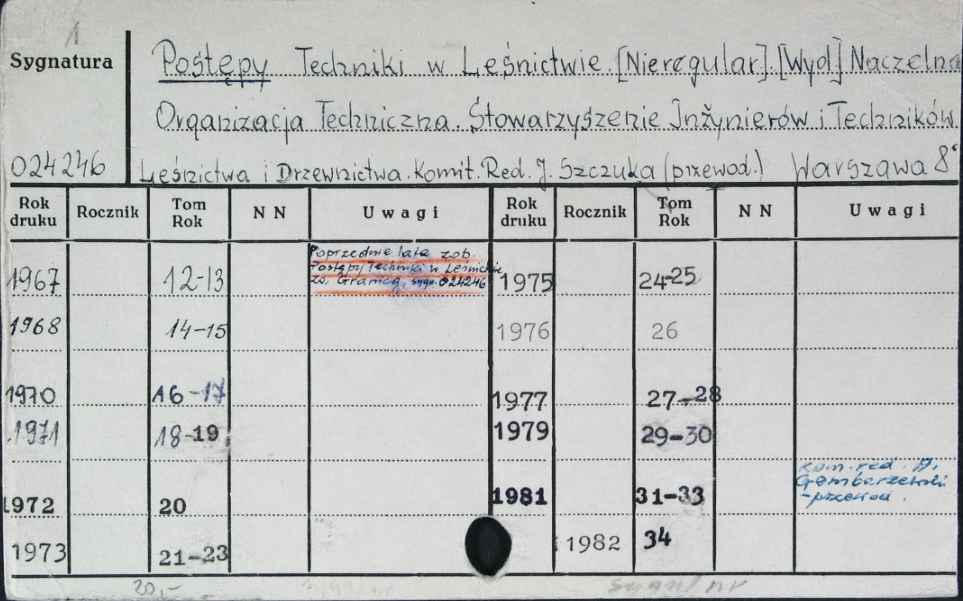 1
Sygnatura
Postępy Techniki w Leśnictwie. [Nieregular]. [Wyd] Naczelna
Organizacja Techniczna. Stowarzyszenie Inżynierów i Techników
024246 Leśnictwa i Drzewnictwa. Komit. Red. J. Szczuka (przewod.) Warszawa 8°
Rok druku Rocznik Tom Rok NN Uwagi Rok druku Rocznik Tom Rok NN Uwagi
Poprzednie lata zob.
Postępy Techniki w Leśnictwie
sygn. 024246
1967 12-13 1975 24-25
1968 14-15 1976 26
1970 16-17 1977 27-28
1971 18-19 1979 29-30
kom. red. A.
- przewod.
1972 20 1981 31-33
1973 21-23 1982 34
20,-